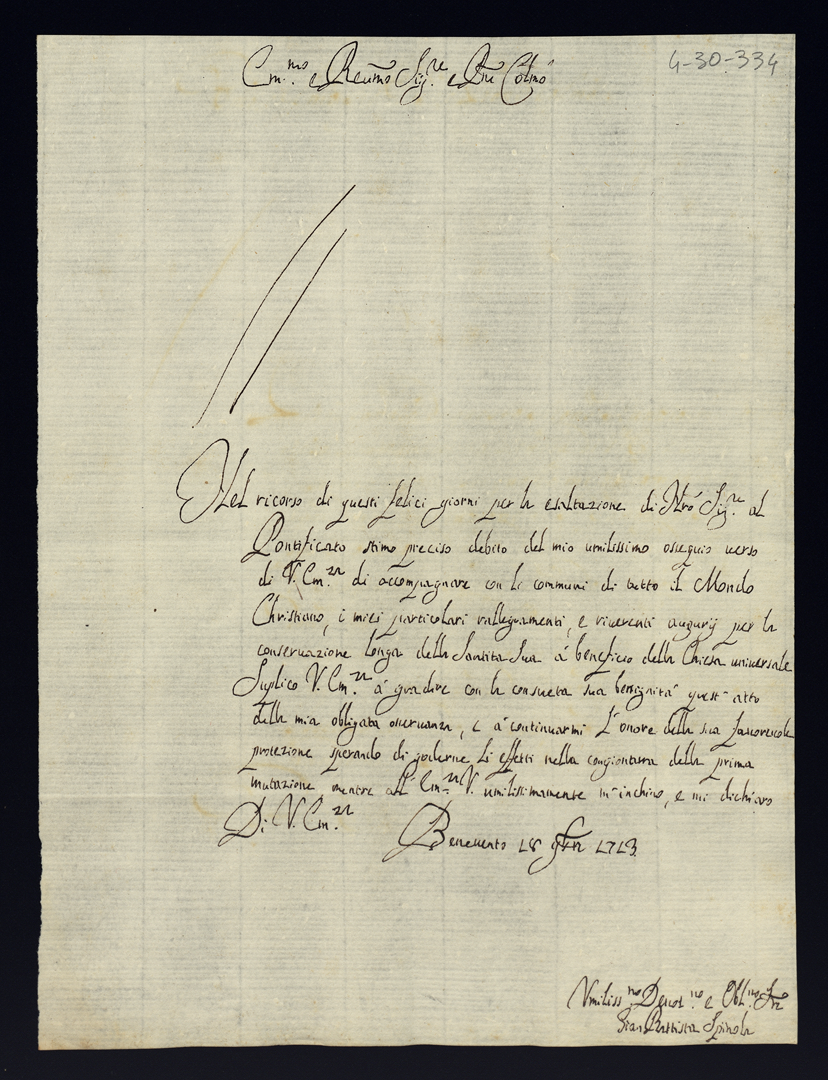 Em.mo e Reumo Sig.re e Pne Colmo
4-30-334
Nel ricorso di questi felici giorni per la esaltazione di Nrō Sig.re al
Pontificato stimo preciso debito del mio umilissimo ossequio verso
di V. Em.za di accompagnare con li communi di tutto il Mondo
Christiano, i miei particolari rallegramenti, e riverenti augurij per la
conseruazione longa della Santita Sua á beneficio della Chiesa universale
Suplico V. Em.za á gradire con la consueta sua benignitá quest' atto
della mia obligata osseruanza, e á continuarmi l'onore della sua fauoreuole
protezione sperando di goderne li effetti nella congiontura della prima
mutazione mentre all' Em.za V. umilissimamente m'inchino, e mi dichiaro
Di V. Em.za
Beneuento 18 1713
Vmiliss.mo Deuot.mo e Obl.mo
Gian Battista Spinola